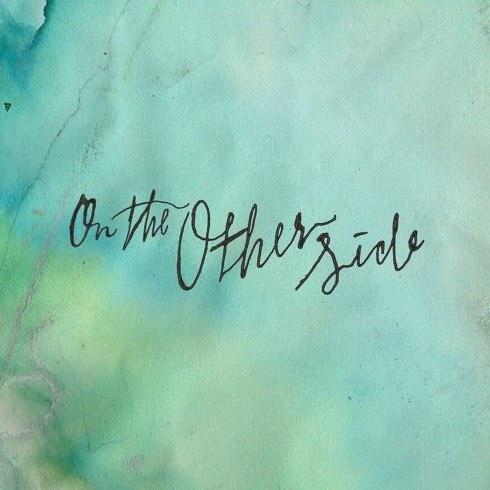 On the Other side